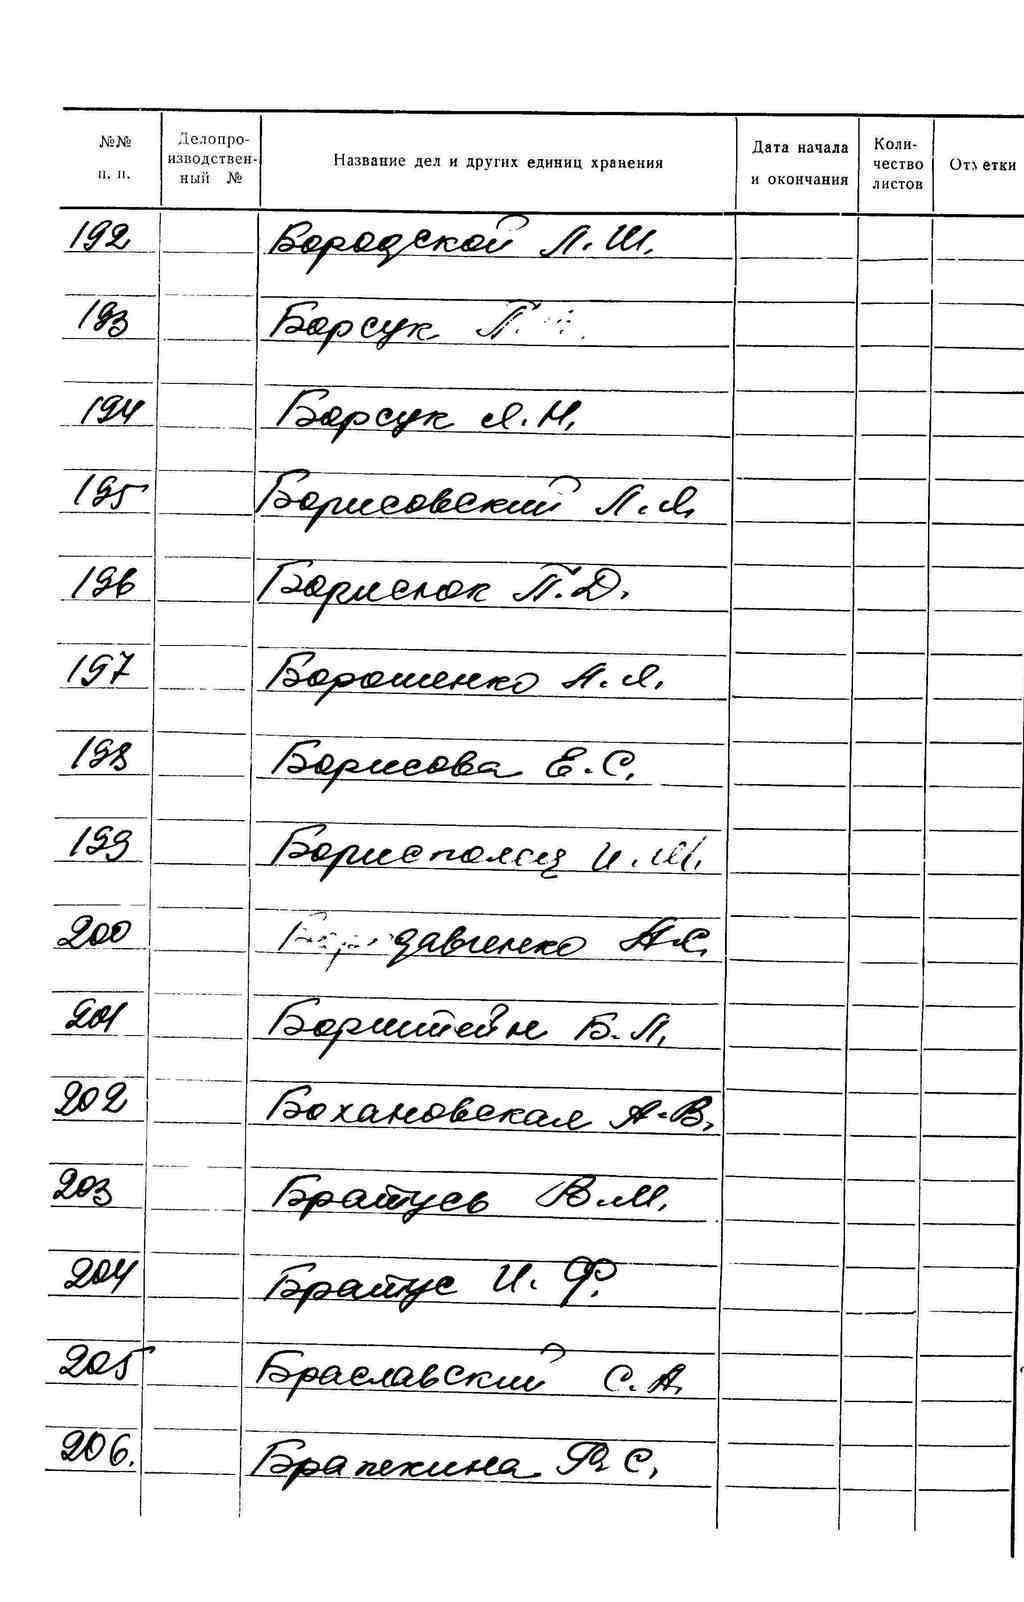 №№ п. п. Делопроизводственный № Название дел и других единиц хранения Дата начала и окончания Количество листов Отметки
192 Бородской Л. Ш.
193 Борсук П.
194 Борсук Я. Н.
195 Борисовский Л. Я.
196 Борисюк П. Д.
197 Борошенко А. Я.
198 Борисова Е. С.
199 Борисполец И. Ш.
200 давченко
201 Борштейн Б. Л.
202 Бохановская А. В.
203 Братусь В. М.
204 Братус И. Ф.
205 Браславский С. А.
206.